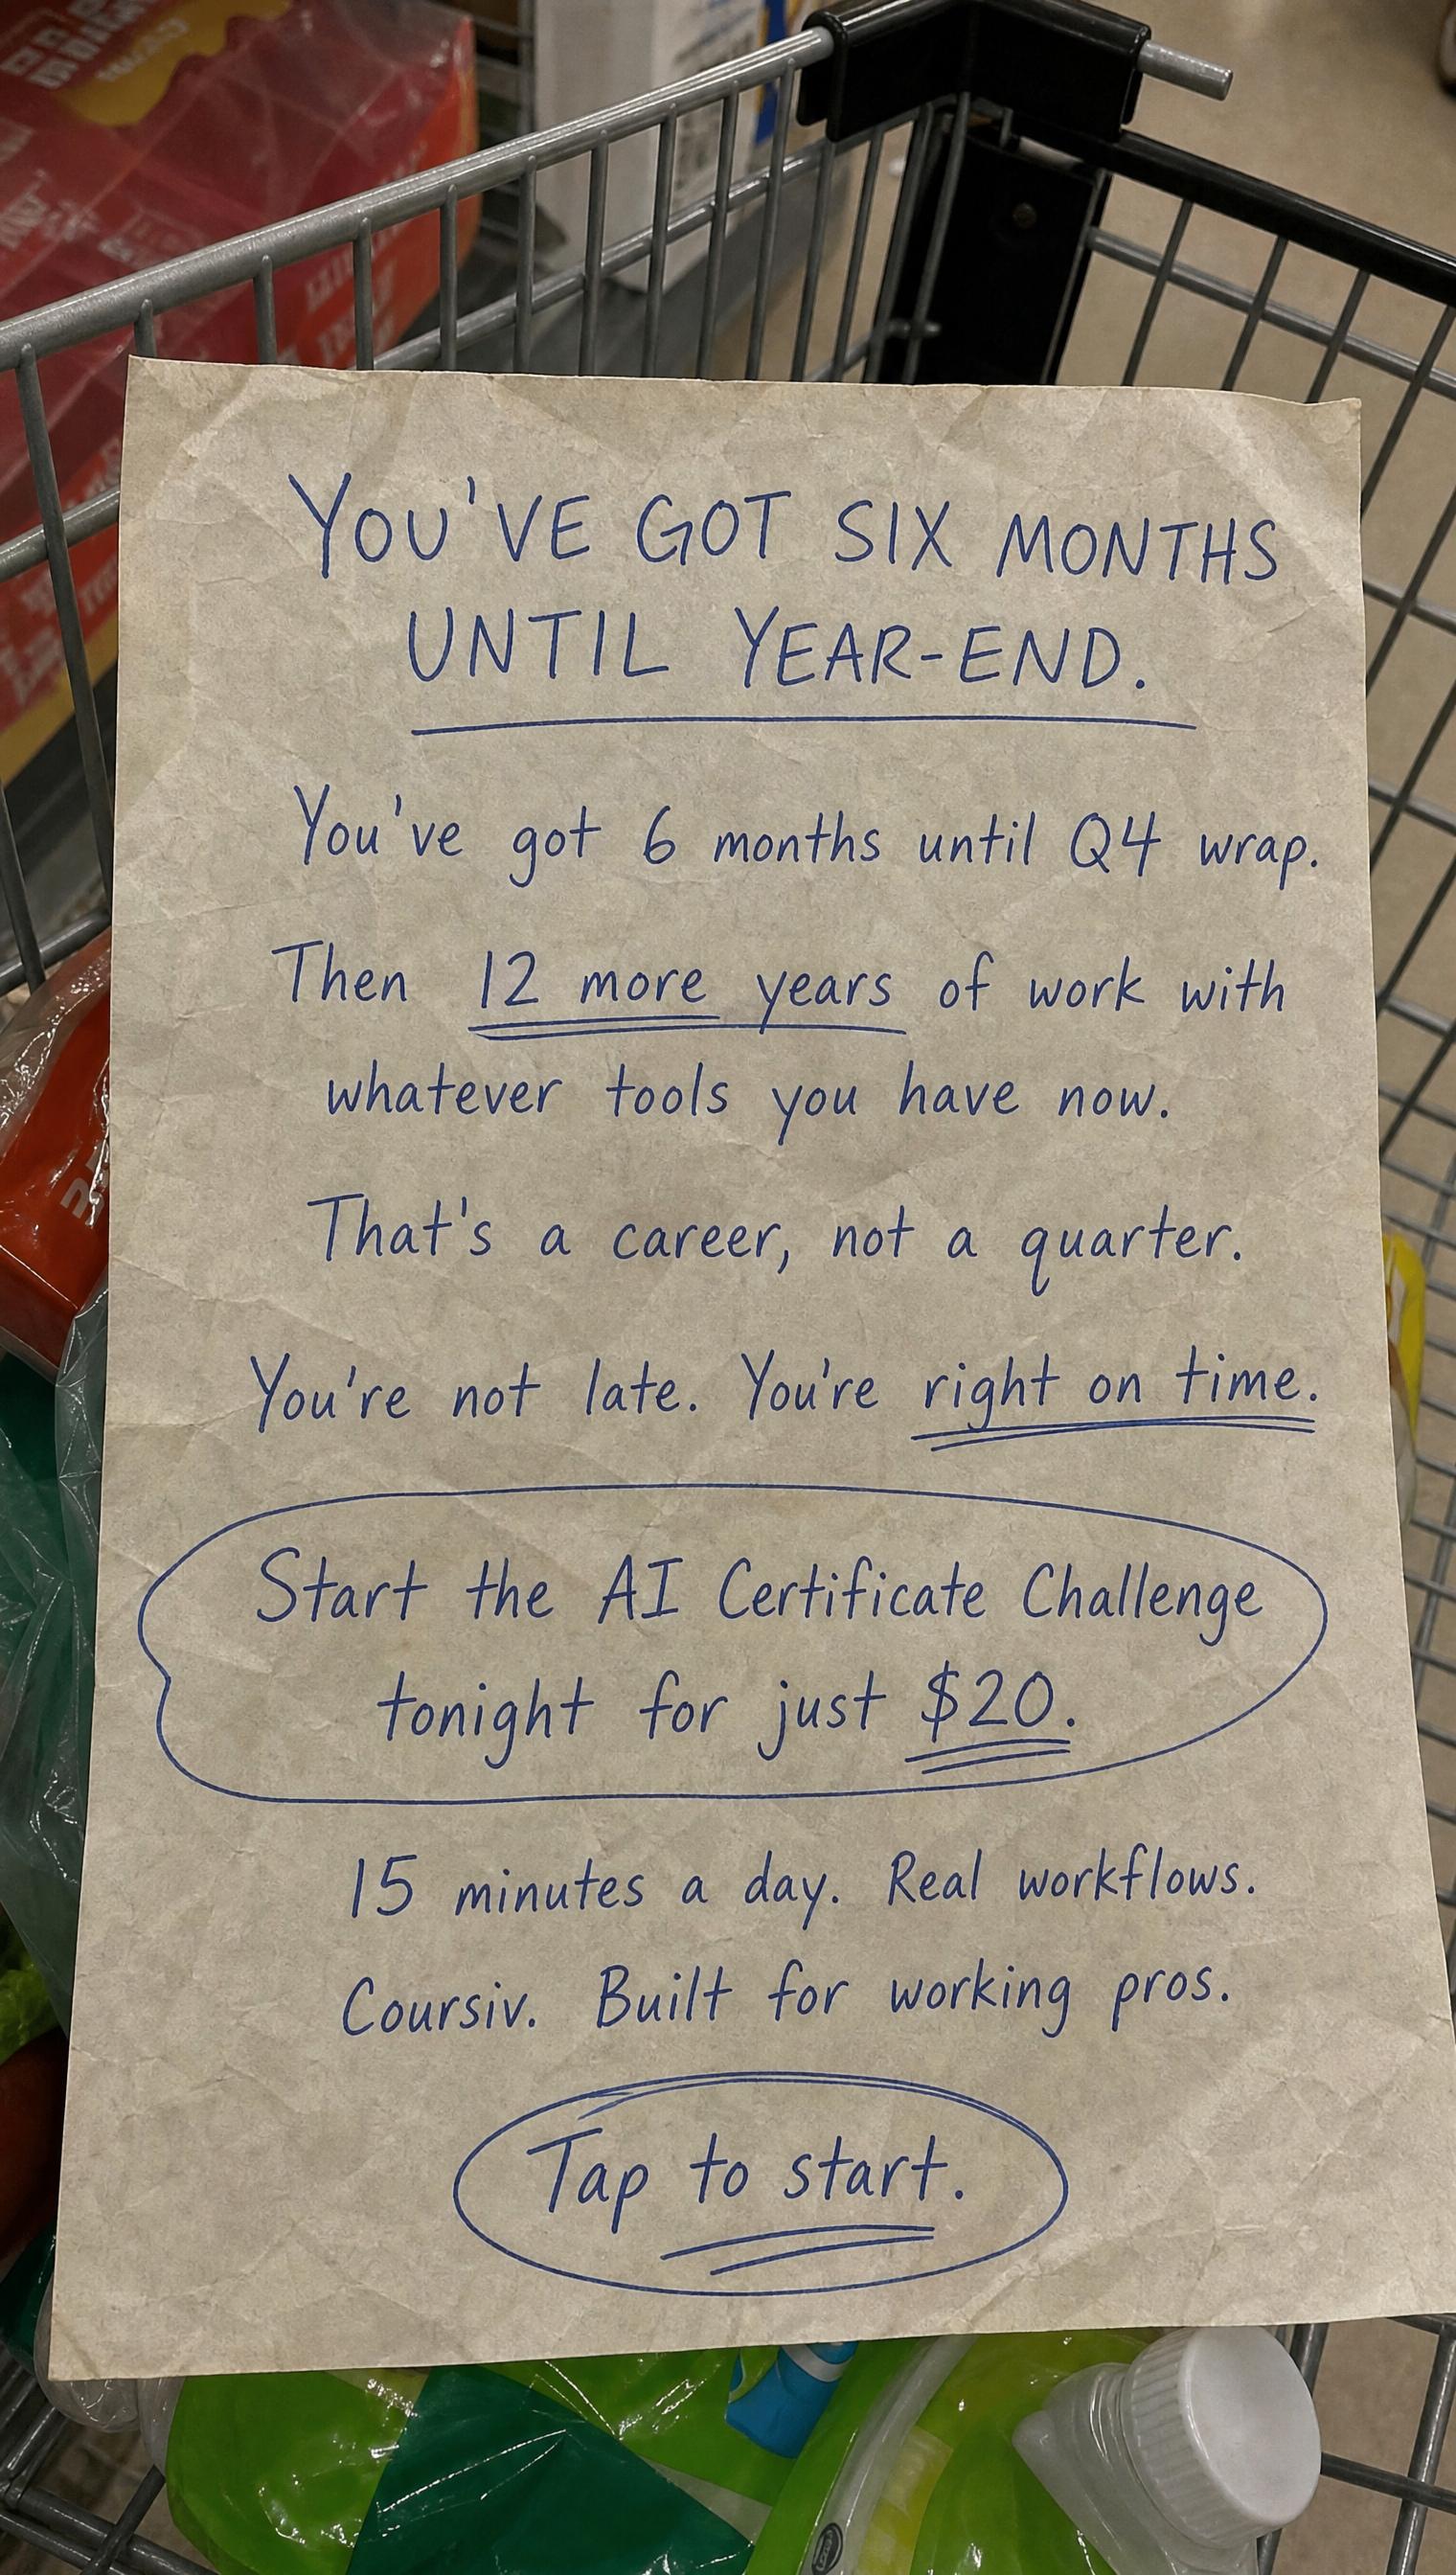 YOU'VE GOT SIX MONTHS
UNTIL YEAR-END.
You've got 6 months until Q4 wrap.
Then 12 more years of work with
whatever tools you have now.
That's a career, not a quarter.
You're not late. You're right on time.
Start the AI Certificate Challenge
tonight for just $20.
15 minutes a day. Real workflows.
Coursiv. Built for working pros.
Tap to start.